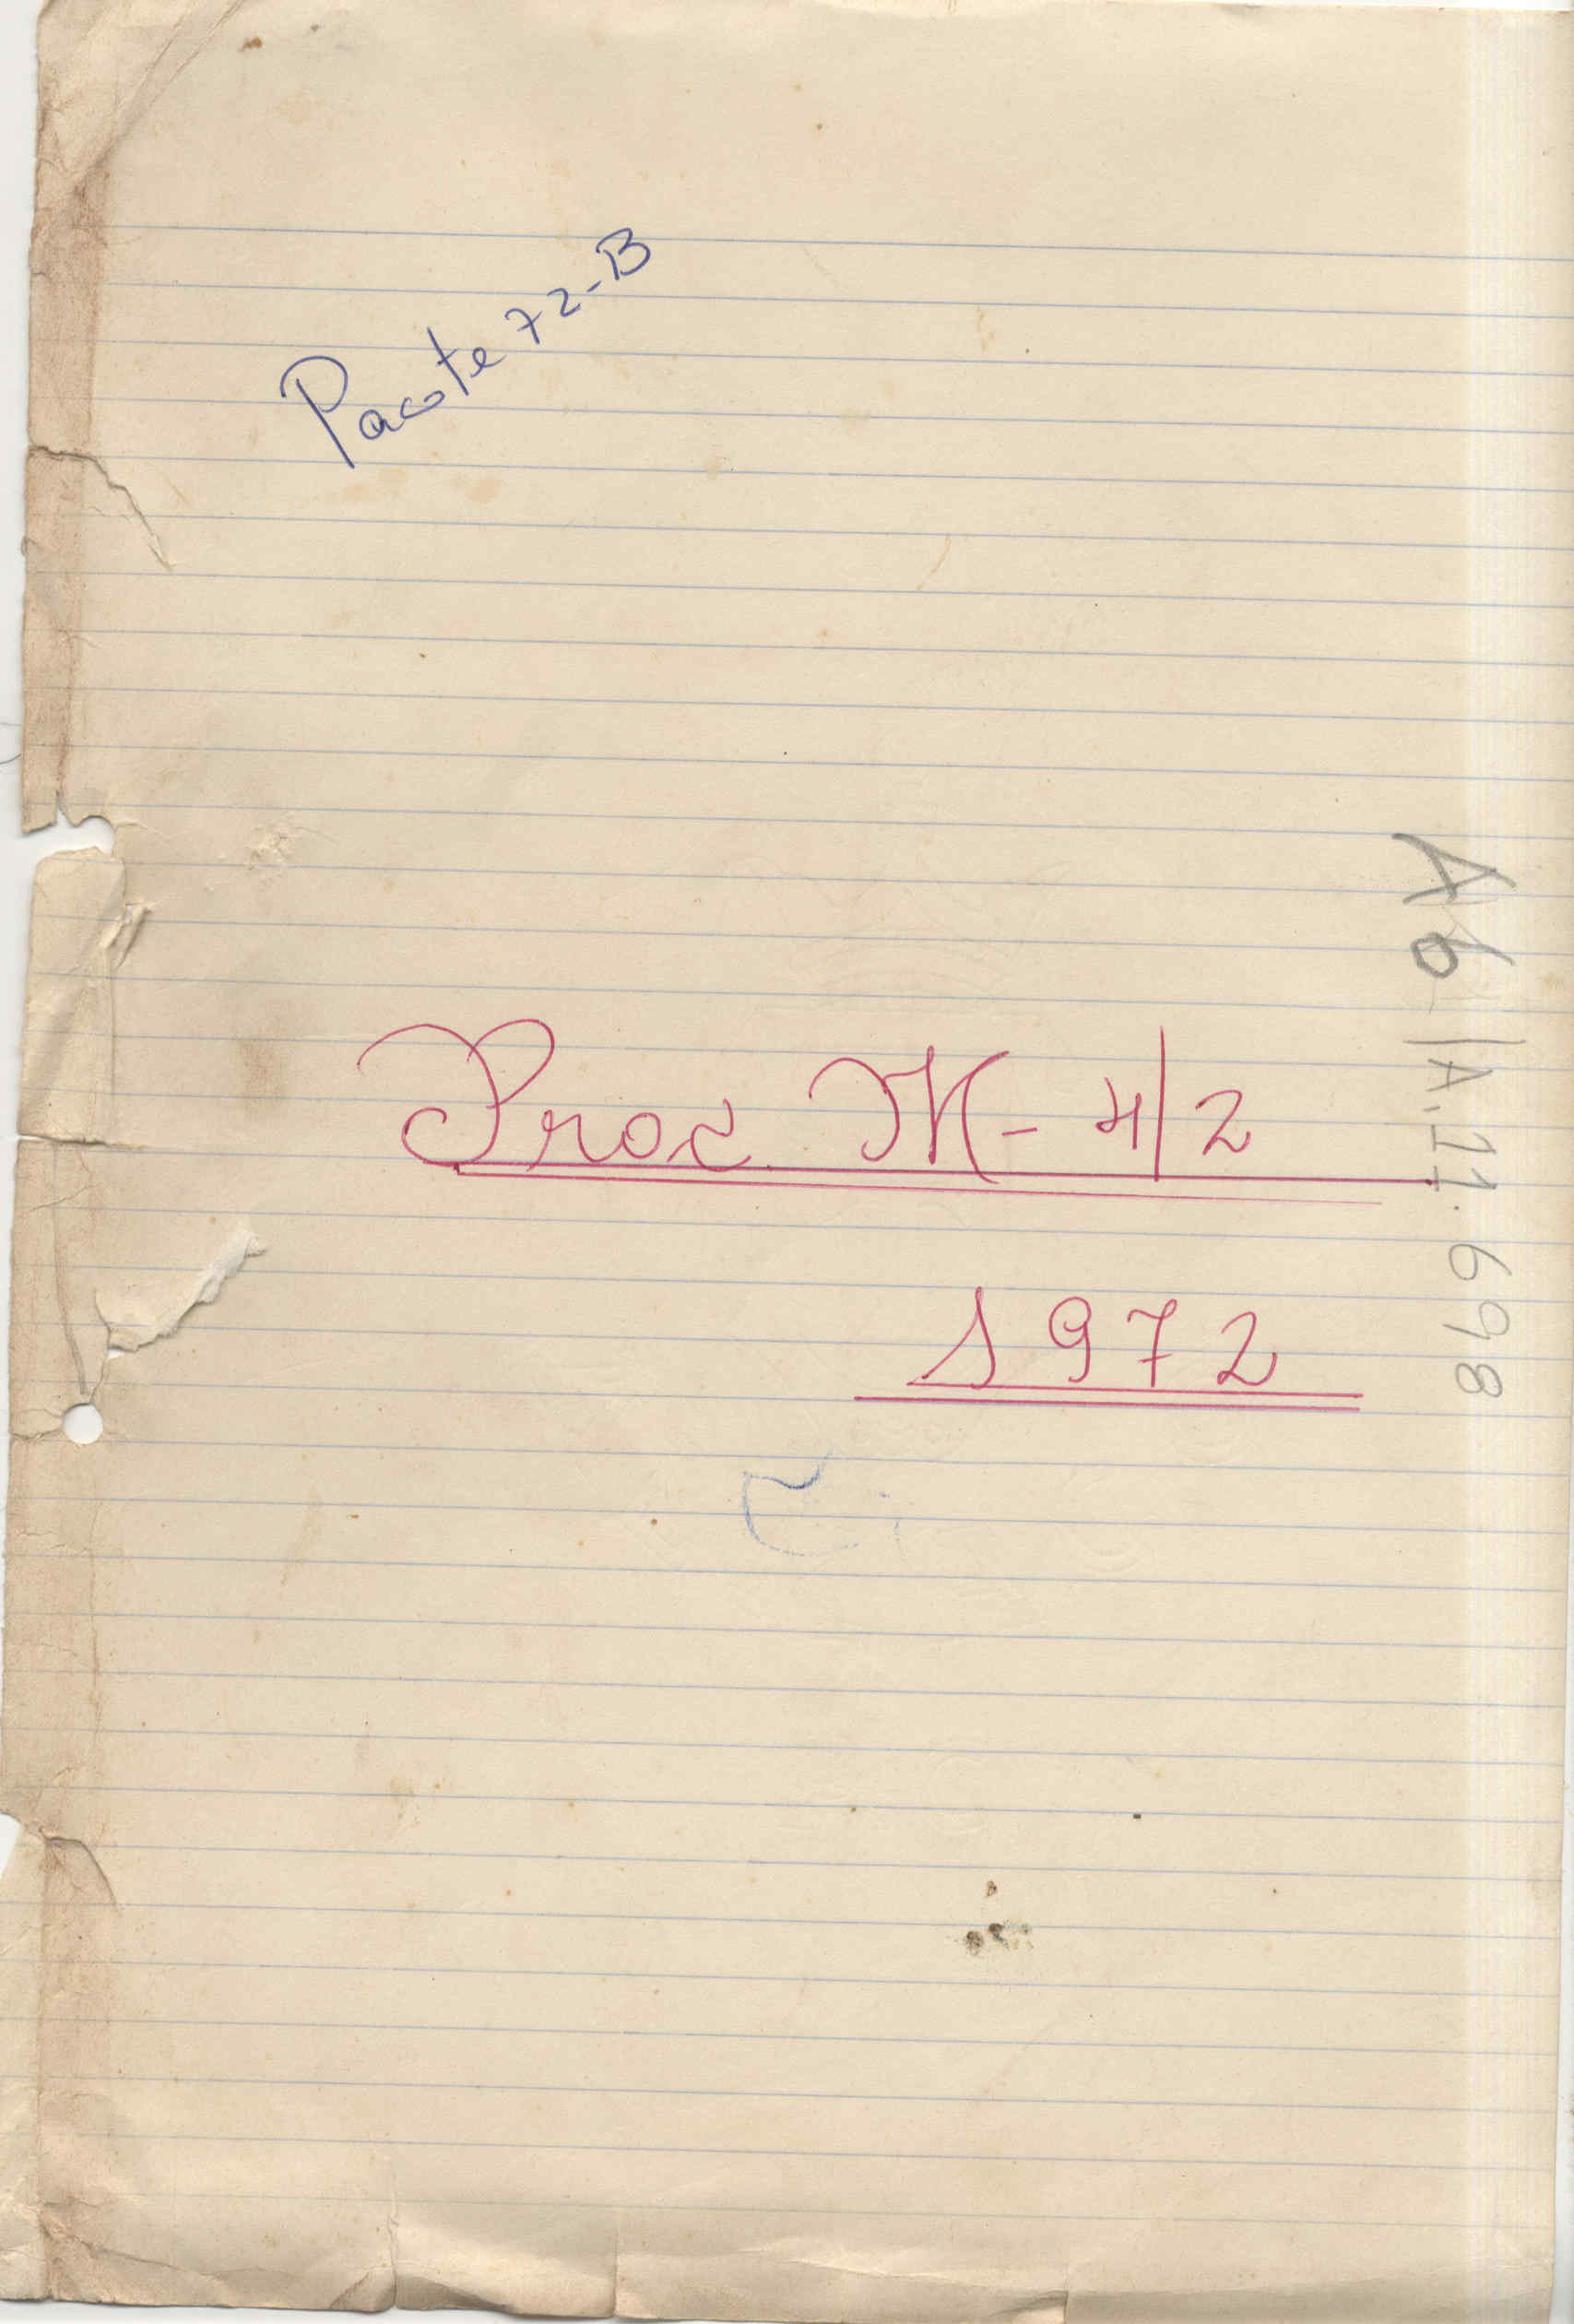 Pacote 72-B
Proc. K- 4/2
1972
A6 |A.11.698